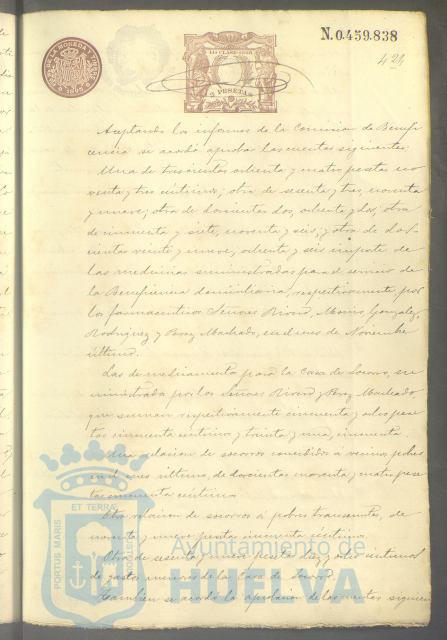 N.0.459.838
424
11ª CLASE
2 PESETAS
Aceptando los informes de la Comision de Benefi-
cencia se acordó aprobar las cuentas siguientes:
Una de trescientas ochenta y cuatro pesetas no-
venta y tres céntimos; otra de sesenta y tres, noventa
y nueve; otra de doscientas dos, ochenta y dos; otra
de cincuenta y siete, noventa y seis; y otra de dos-
cientas veinte y nueve, ochenta y seis importe de
las medicinas suministradas para el servicio de
la Beneficencia domiciliaria, respectivamente, por
los farmaceuticos Señores Gonzalez,
Rodriguez y Perez Machado, en el mes de Noviembre
último.
Las de medicamentos para la Casa de Socorro, su-
ministrada por los Señores y Perez Machado,
que suman respectivamente cincuenta y ocho pese-
tas cincuenta céntimos y treinta y una, cincuenta
Una relacion de socorros concedidos a vecinos pobres
en el mes último, de doscientas noventa y cuatro pese-
tas cincuenta céntimos
Otra relacion de socorros á pobres transeuntes, de
noventa y nueve pesetas cincuenta céntimos.
Otra de sesenta y pesetas diez y ocho céntimos
de gastos menores de la Casa de Socorro.
Tambien se acordó la aprobacion de las cuentas siguien-
PORTUS MARIS
ET TERRAE
Ayuntamiento de
HUELVA